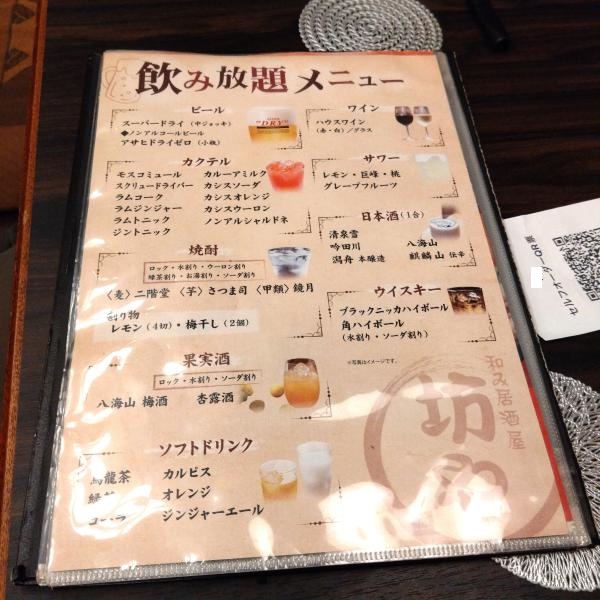 飲み放題メニュー
ビール
スーパードライ（中ジョッキ）
◆ノンアルコールビール
アサヒドライゼロ（小瓶）
"DRY"
カクテル
モスコミュール
スクリュードライバー
ラムコーク
ラムジンジャー
ラムトニック
ジントニック
カルーアミルク
カシスソーダ
カシスオレンジ
カシスウーロン
ノンアルシャルドネ
焼酎
ロック・水割り・ウーロン割り
緑茶割り・お湯割り・ソーダ割り
〈麦〉二階堂 〈芋〉さつま司 〈甲類〉鏡月
割り物
レモン（4切）・梅干し（2個）
果実酒
ロック・水割り・ソーダ割り
八海山 梅酒 杏露酒
ソフトドリンク
烏龍茶
緑茶
コーラ
カルピス
オレンジ
ジンジャーエール
ワイン
ハウスワイン
（赤・白）／グラス
サワー
レモン・巨峰・桃
グレープフルーツ
日本酒（1合）
清泉雪
吟田川
潟舟 本醸造
八海山
麒麟山 伝辛
ウイスキー
ブラックニッカハイボール
角ハイボール
（水割り・ソーダ割り）
※写真はイメージです。
和み居酒屋
セルフオーダーQR票